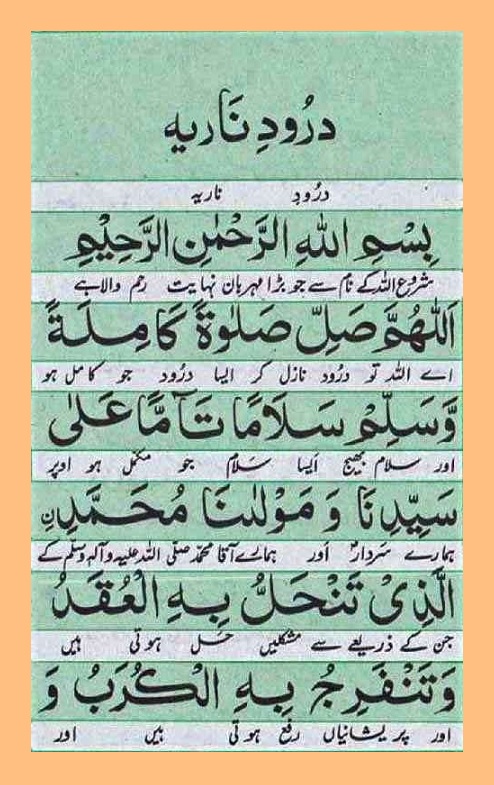 درُودِ نَاریه
درُودِ ناریه
بِسْمِ اللهِ الرَّحْمٰنِ الرَّحِيْمِ
شروع اللہ کے نام سے جو بڑا مہربان نہایت رحم والا ہے
اَللّٰهُمَّ صَلِّ صَلٰوةً كَامِلَةً
اے اللہ تو درُود نازل کر ایسا درُود جو کامل ہو
وَّسَلِّمْ سَلَامًا تَآمًّا عَلٰى
اور سلام بھیج ایسا سلام جو مکمل ہو اوپر
سَيِّدِنَا وَ مَوْلٰنَا مُحَمَّدِنِ
ہمارے سردار اور ہمارے آقا محمد صلی اللہ علیہ وآلہ وسلم کے
الَّذِىْ تَنْحَلُّ بِهِ الْعُقَدُ
جن کے ذریعے سے مشکلیں حل ہوتی ہیں
وَتَنْفَرِجُ بِهِ الْكُرَبُ وَ
اور پریشانیاں رفع ہوتی ہیں اور